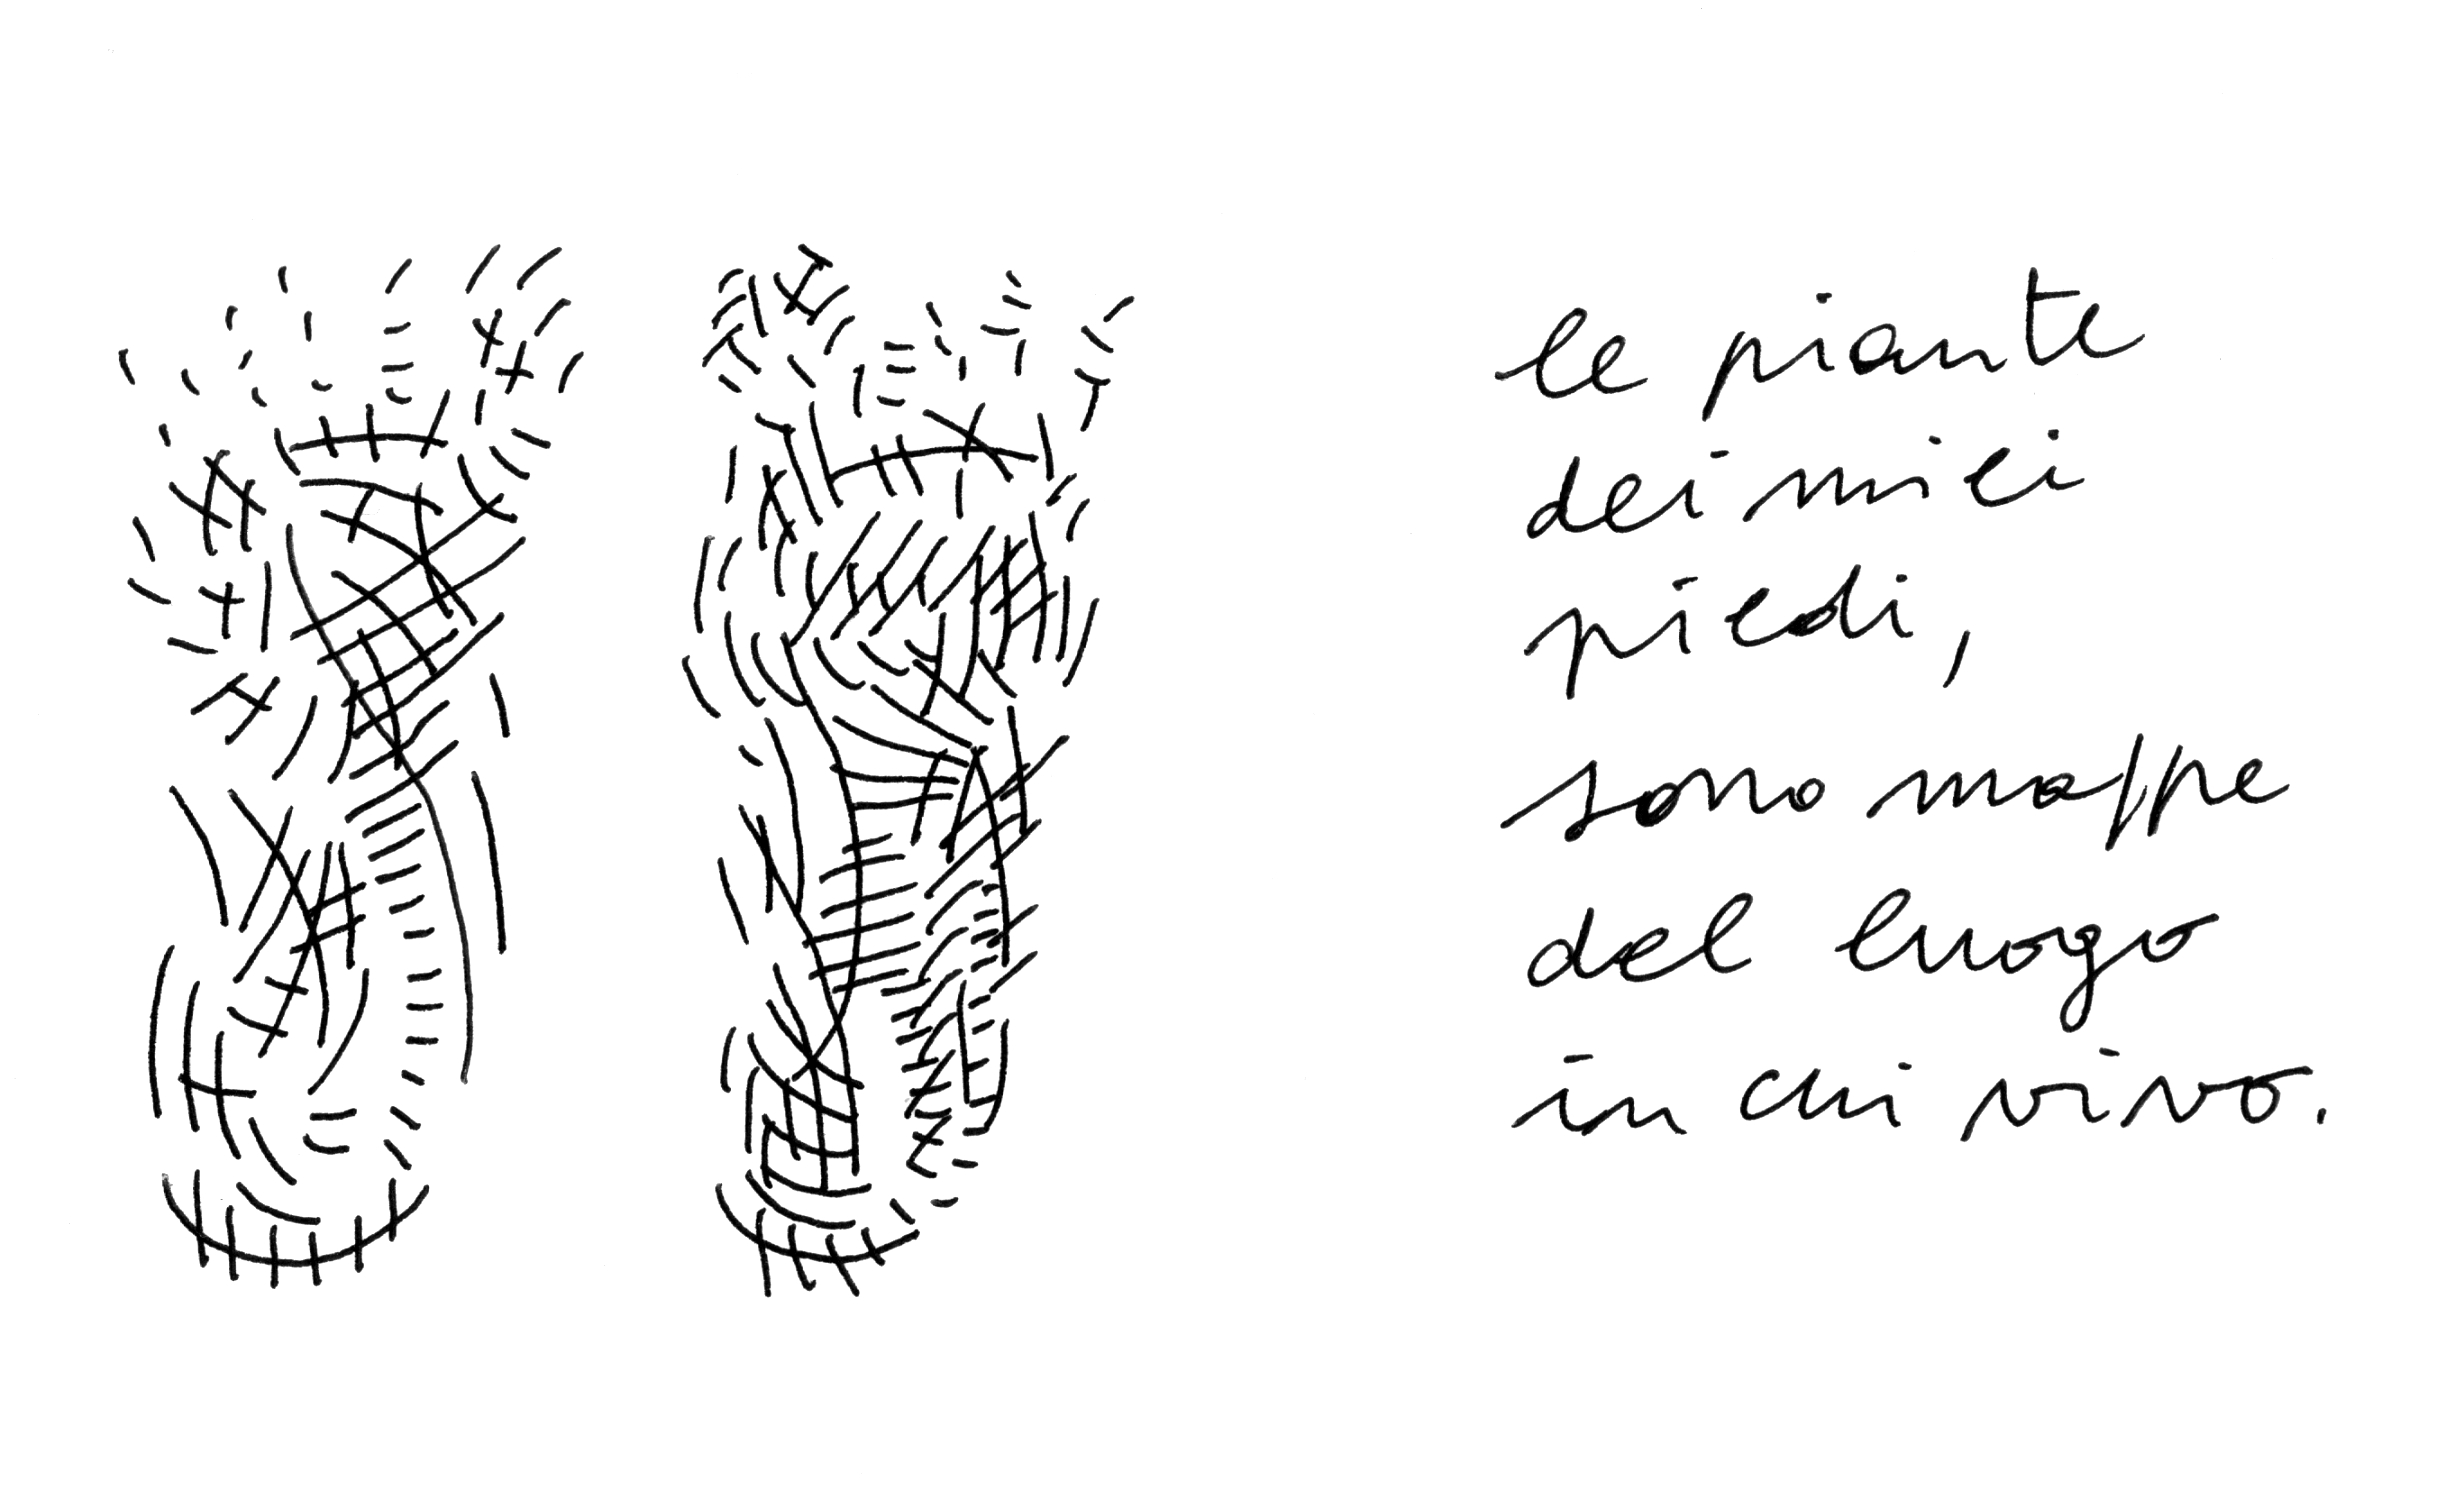 le piante
dei miei
piedi,
sono mappe
del luogo
in cui vivo.